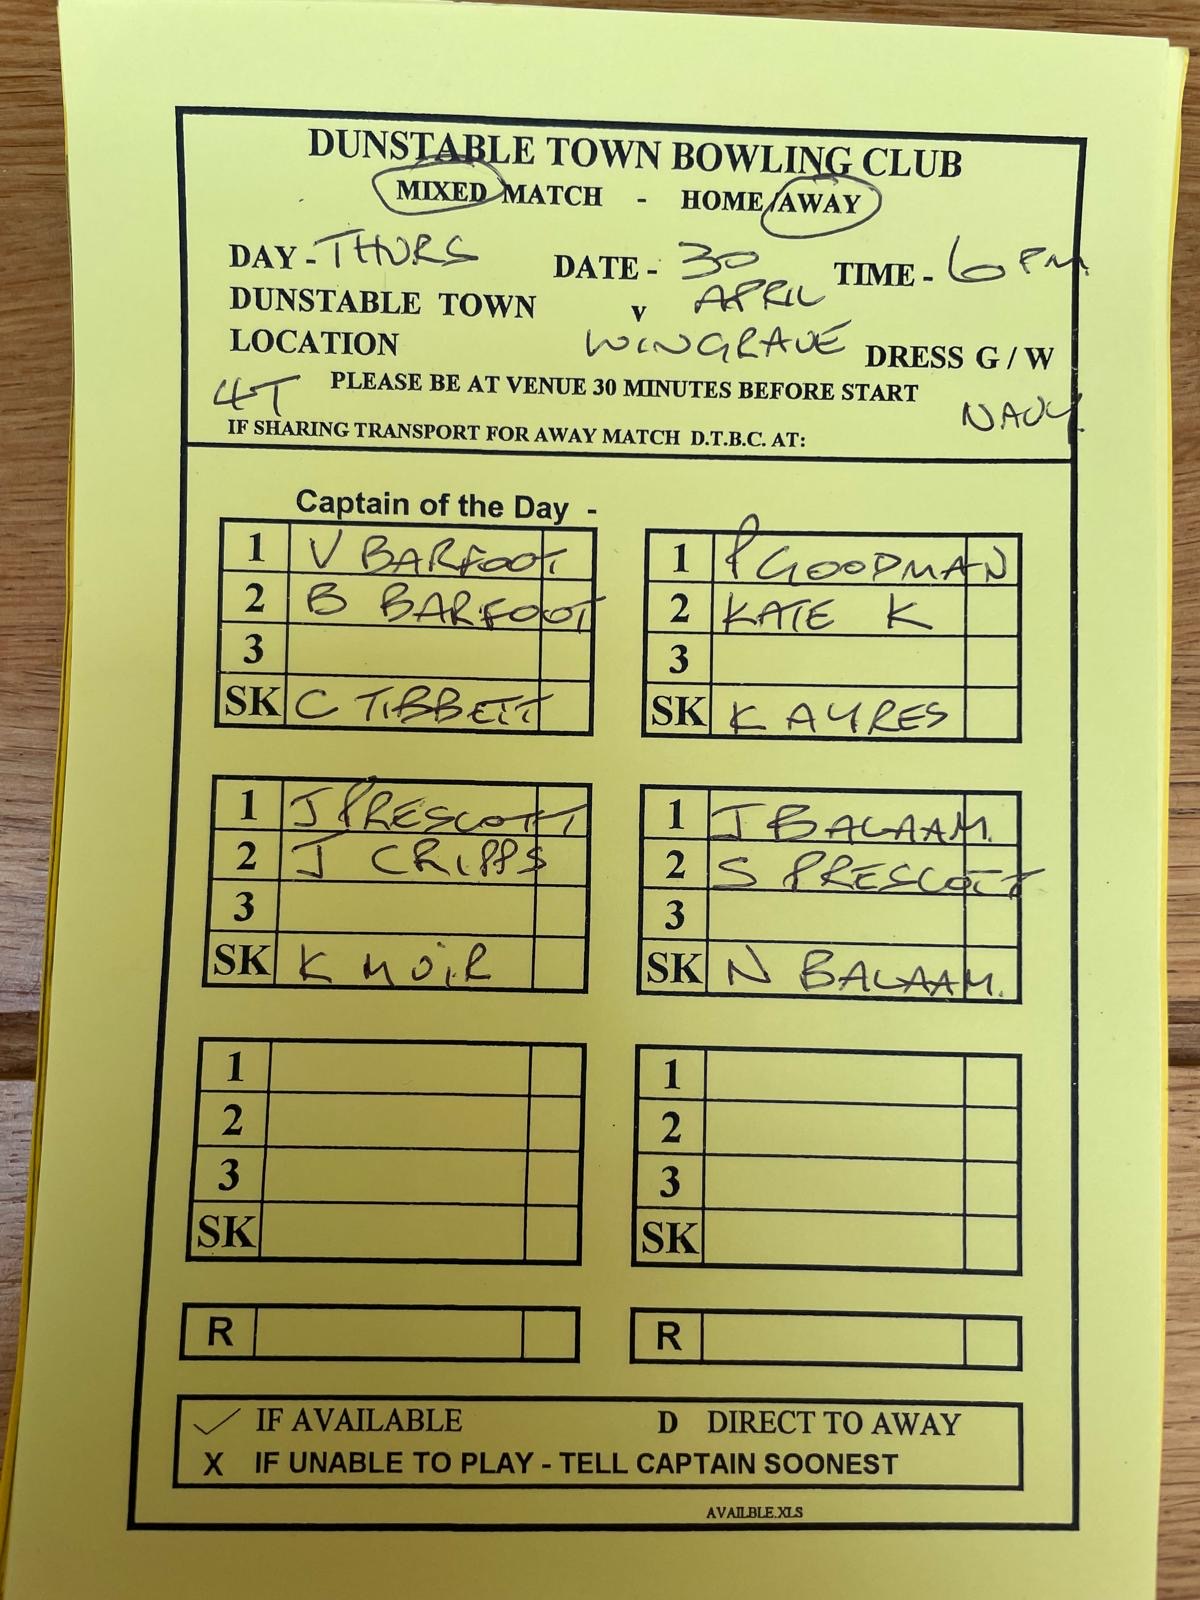 DUNSTABLE TOWN BOWLING CLUB
MIXED MATCH - HOME/AWAY
DAY - THURS DATE - 30 APRIL TIME - 6 PM
DUNSTABLE TOWN v WINGRAVE
LOCATION DRESS G / W
4T PLEASE BE AT VENUE 30 MINUTES BEFORE START NAVY
IF SHARING TRANSPORT FOR AWAY MATCH D.T.B.C. AT:
Captain of the Day -
1 V BARFOOT
2 B BARFOOT
3
SK C TIBBETT
1 P GOODMAN
2 KATE K
3
SK K AYRES
1 J PRESCOTT
2 J CRIPPS
3
SK K MUIR
1 J BALAAM.
2 S PRESCOTT
3
SK N BALAAM.
1
2
3
SK
1
2
3
SK
R
R
✓ IF AVAILABLE D DIRECT TO AWAY
X IF UNABLE TO PLAY - TELL CAPTAIN SOONEST
AVAILBLE.XLS